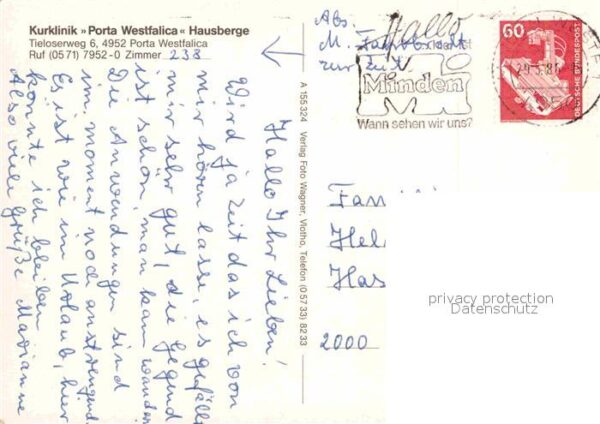 Kurklinik »Porta Westfalica« Hausberge
Tieloserweg 6, 4952 Porta Westfalica
Ruf (05 71) 7952-0 Zimmer 238
Hallo Ihr Lieben!
Wird ja Zeit das ich von
mir hören lasse, es gefällt
mir sehr gut, die Gegend
ist schön, man kann wandern
Die Anwendungen sind
im moment noch anstrengend.
Es ist wie im Urlaub, hier
könnte ich bleiben.
Also viele Grüße Marianne
A 155 324 Verlag Foto Wagner, Vlotho, Telefon (0 57 33) 82 33
Abs.
M.
zur Zeit
Hallo
Minden
Wann sehen wir uns?
60
DEUTSCHE BUNDESPOST
Fam
Hel
Has
2000
privacy protection
Datenschutz